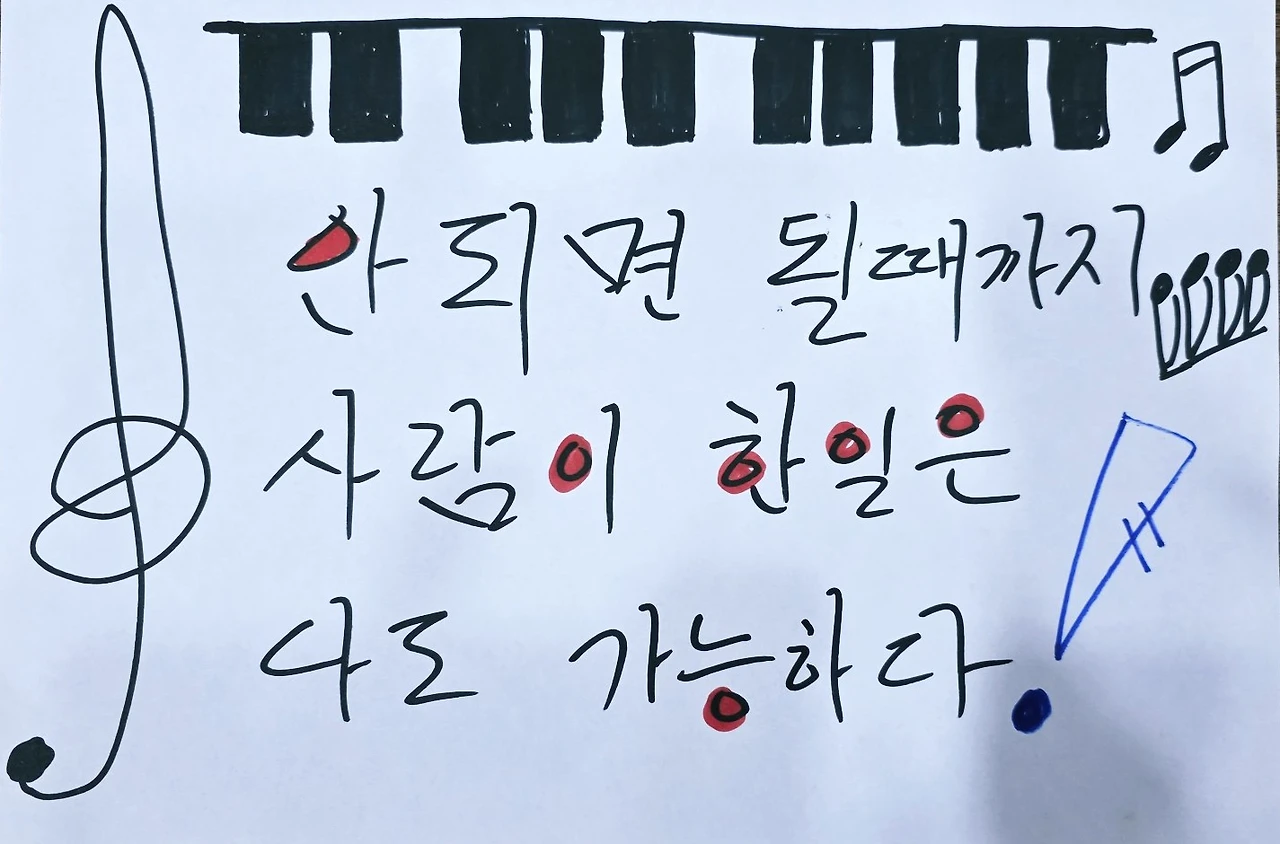 안되면 될때까지
사람이 한일은
나도 가능하다.